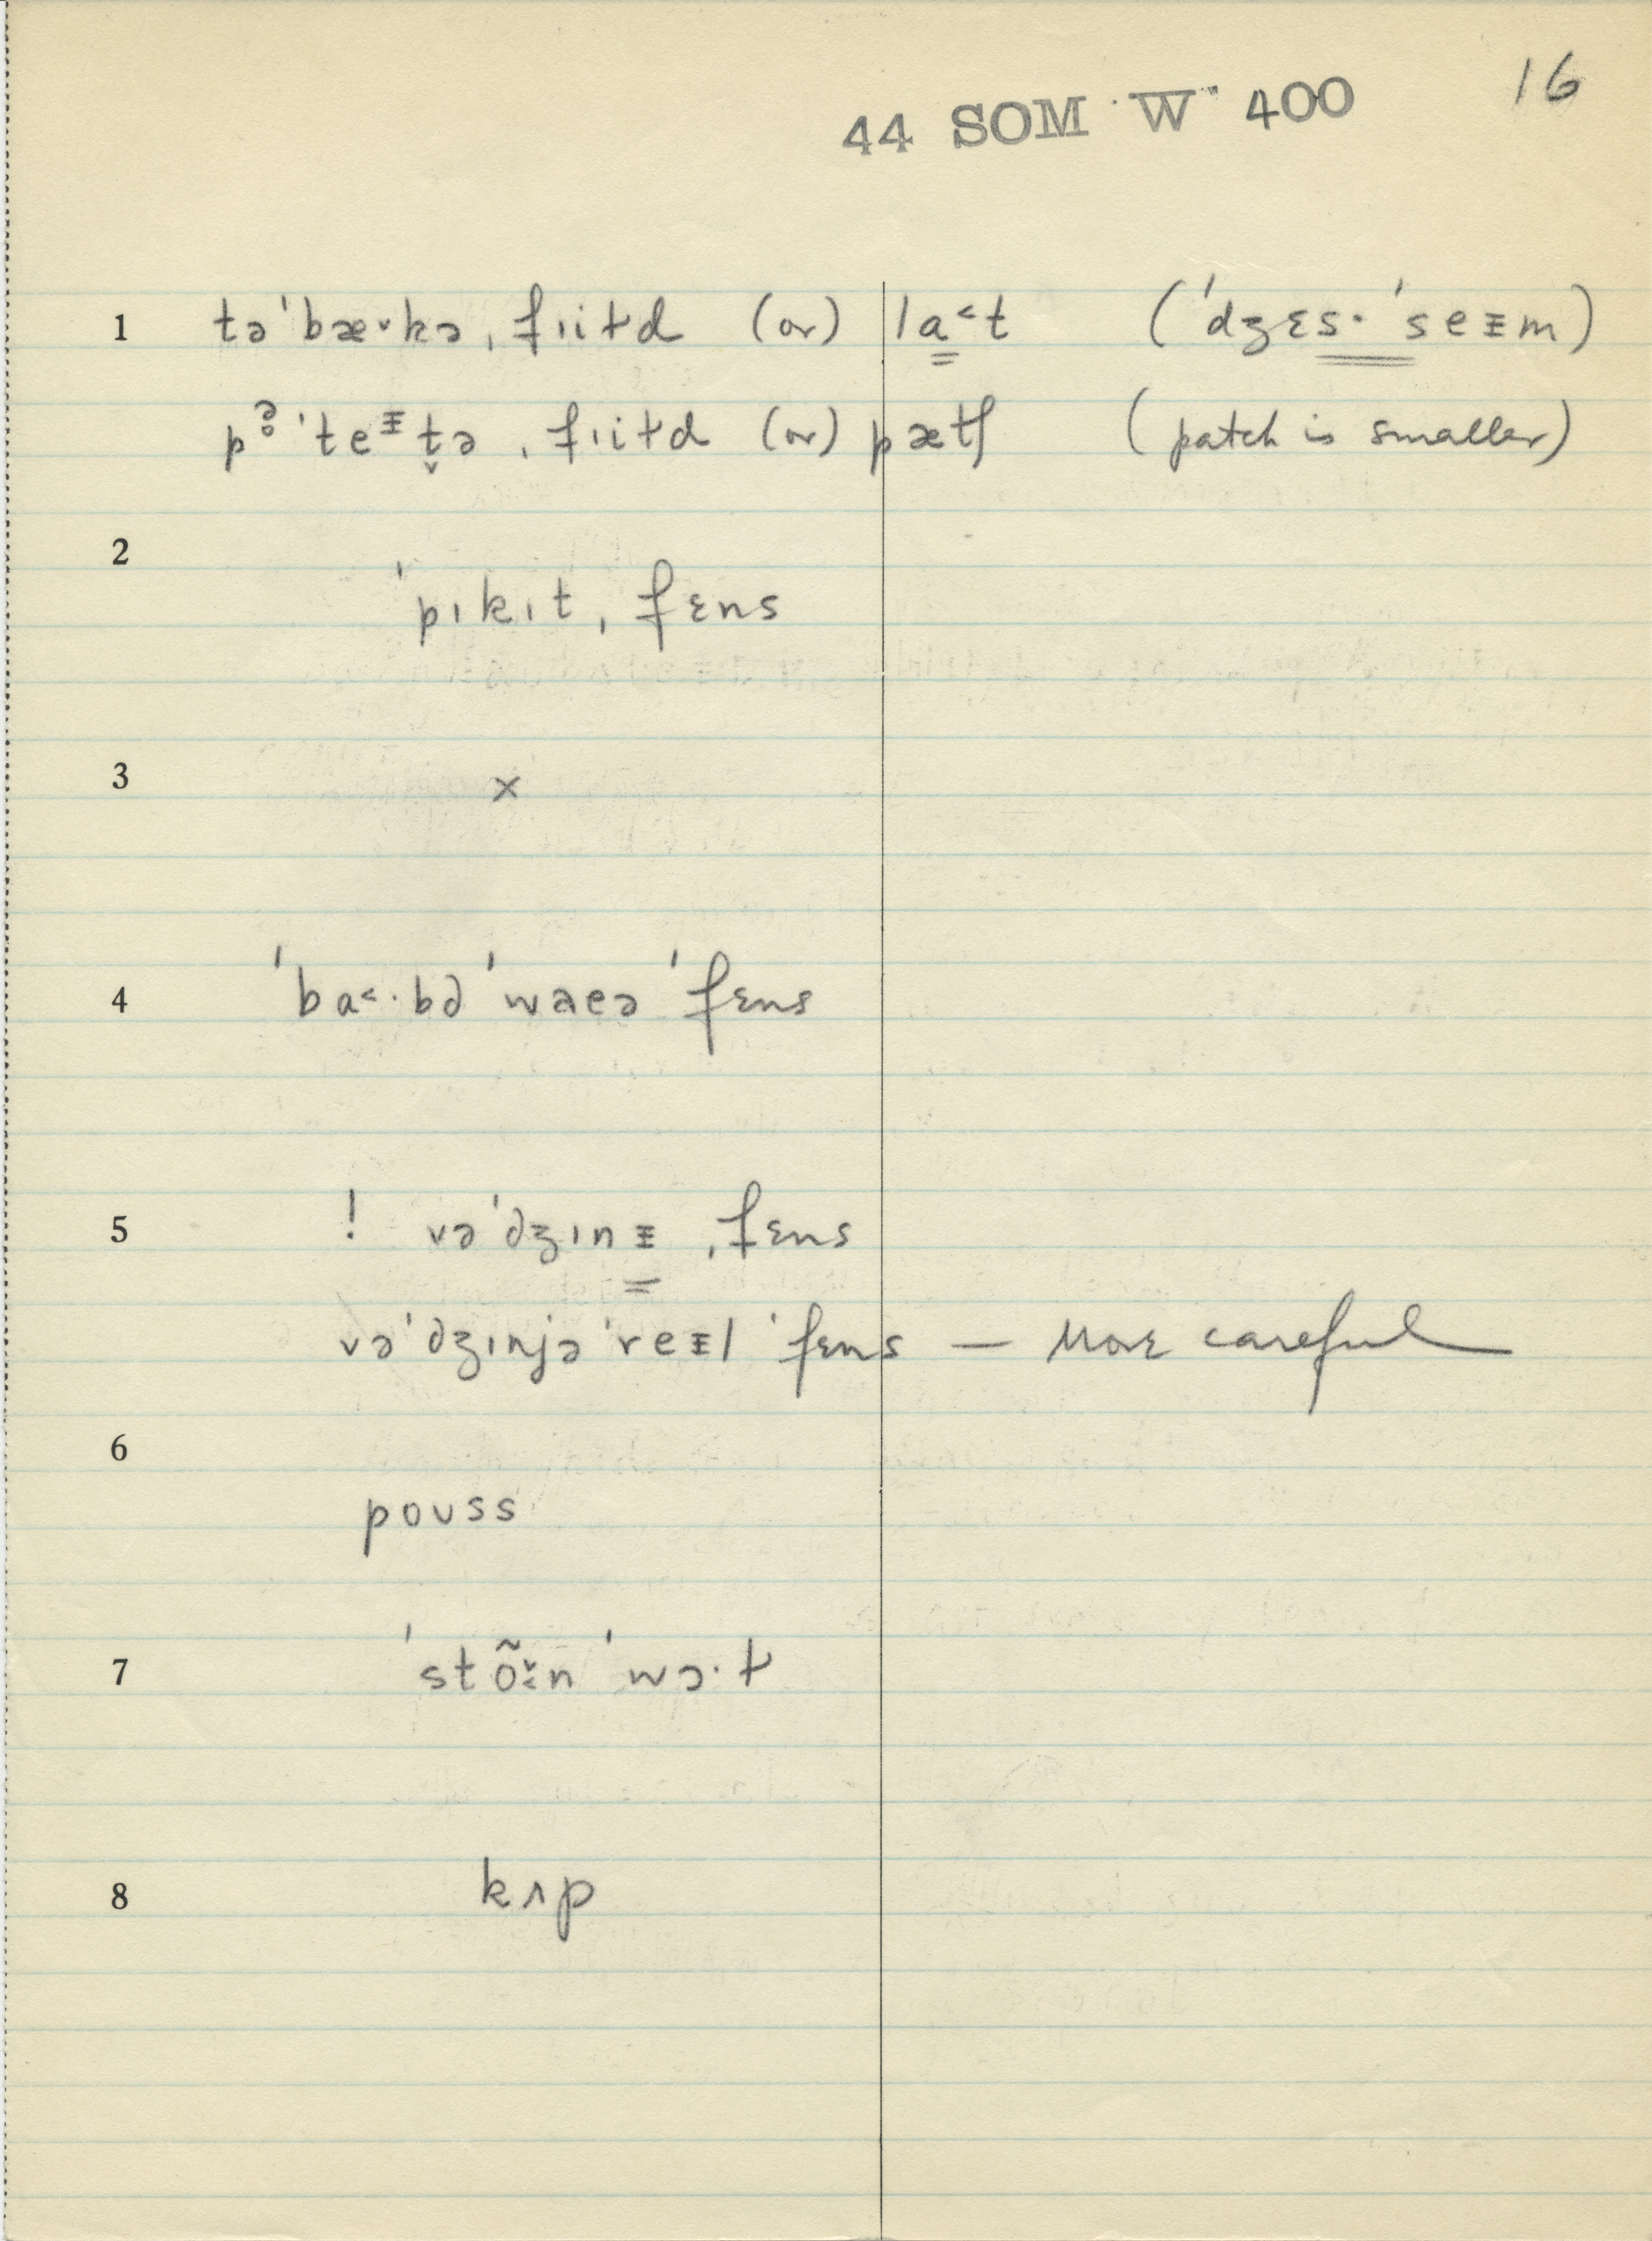 16
44 SOM W 400
1 tə ˈbæ˅kə ˌfɪiɫd (or) la˂t (ˈdʒɛs· ˈseᵻm)
pə̥ ˈteᵻt̬ə ˌfɪiɫd (or) pætʃ (patch is smaller)
2
ˈpɪkɪt ˌfɛns
3 x
4 ˈba˂·bd ˈwaeə ˈfɛns
5 ! və ˈdʒɪnᵻ ˌfɛns
və ˈdʒɪnjə ˈreᵻl ˈfɛns — More careful
6
poʊss
7 ˈstõ˂̌n ˈwɔ·ɫ
8 kʌp